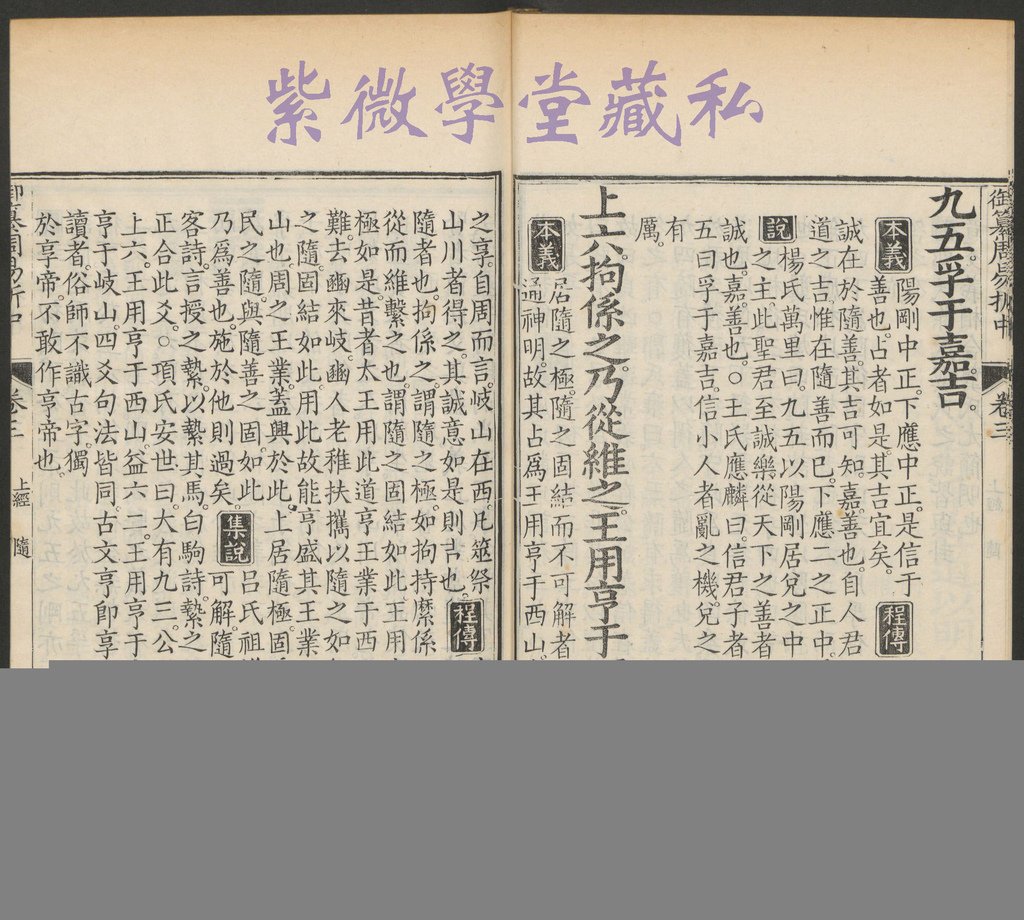 紫微學堂藏私
御纂周易折中
卷三
九五孚于嘉吉。
本義
陽剛中正。下應中正。是信于
善也。占者如是。其吉宜矣。
程傳
誠在於隨善。其吉可知。嘉。善也。自人君
道之吉。惟在隨善而已。下應二之正中。
說
楊氏萬里曰。九五以陽剛居兌之中
之主。此聖君至誠樂從天下之善者
誠也。嘉。善也。○王氏應麟曰。信君子者
五曰孚于嘉吉。信小人者。亂之機。兌之
有
厲。
上六。拘係之。乃從維之。王用亨于
本義
居隨之極。隨之固結而不可解者
通神明。故其占爲王用亨于西山
之享。自周而言。岐山在西。凡筮祭
山川者得之。其誠意如是。則吉也。
程傳
隨者也。拘係之。謂隨之極。如拘持縻係
從而維繫之也。謂隨之固結如此。王用
極如是。昔者太王用此道。亨王業于西
難。去豳來岐。豳人老稚扶攜以隨之如
之隨。固結如此。用此故能亨盛其王業
山也。周之王業。蓋興於此。上居隨極。固
民之隨。與隨善之固如此
乃爲善也。施於他則過矣。
集說
呂氏祖
可解。隨
客詩。言授之縶。以縶其馬。白駒詩。縶之
正合此爻。○項氏安世曰。大有九三。公
上六。王用亨于西山。益六二。王用亨于
亨于岐山。四爻句法皆同。古文亨卽享
讀者。俗師不識古字。獨
於享帝。不敢作亨帝也。
卷三
上經
隨